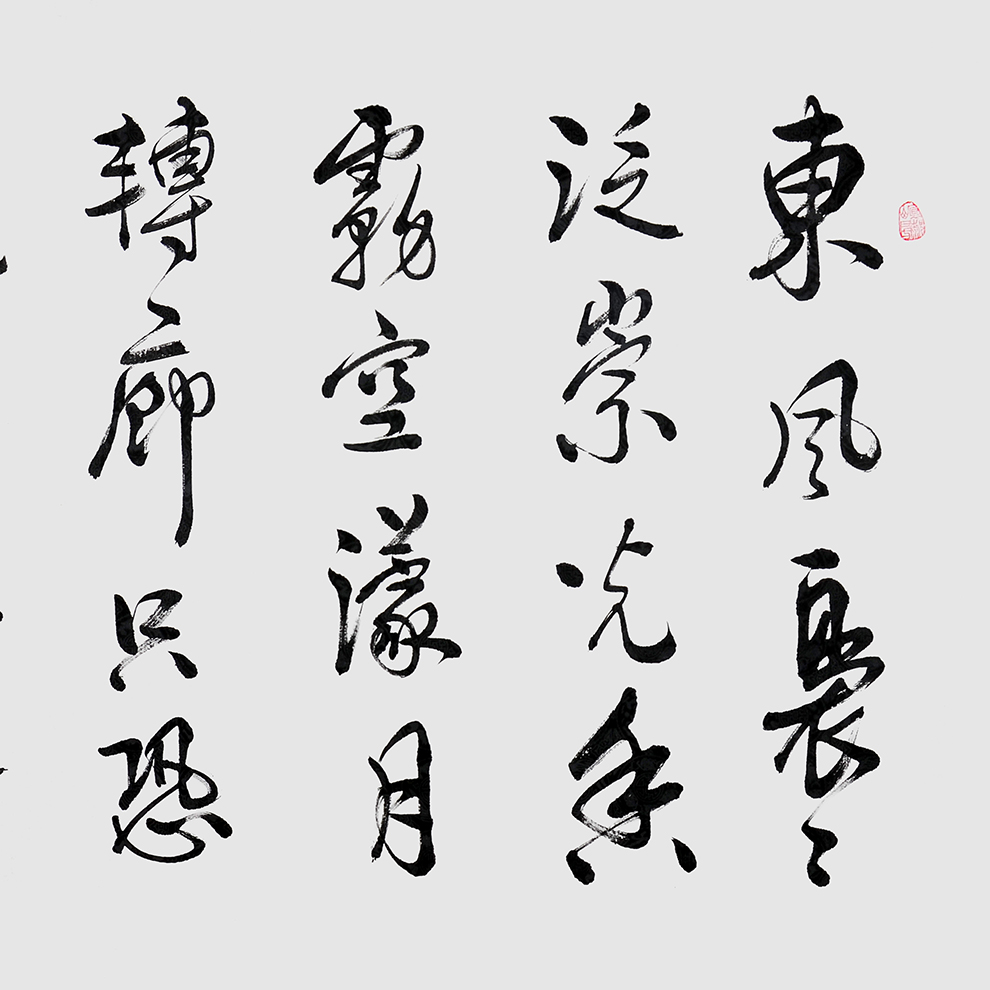 東風裊々
泛崇光香
霧空濛月
轉廊只恐